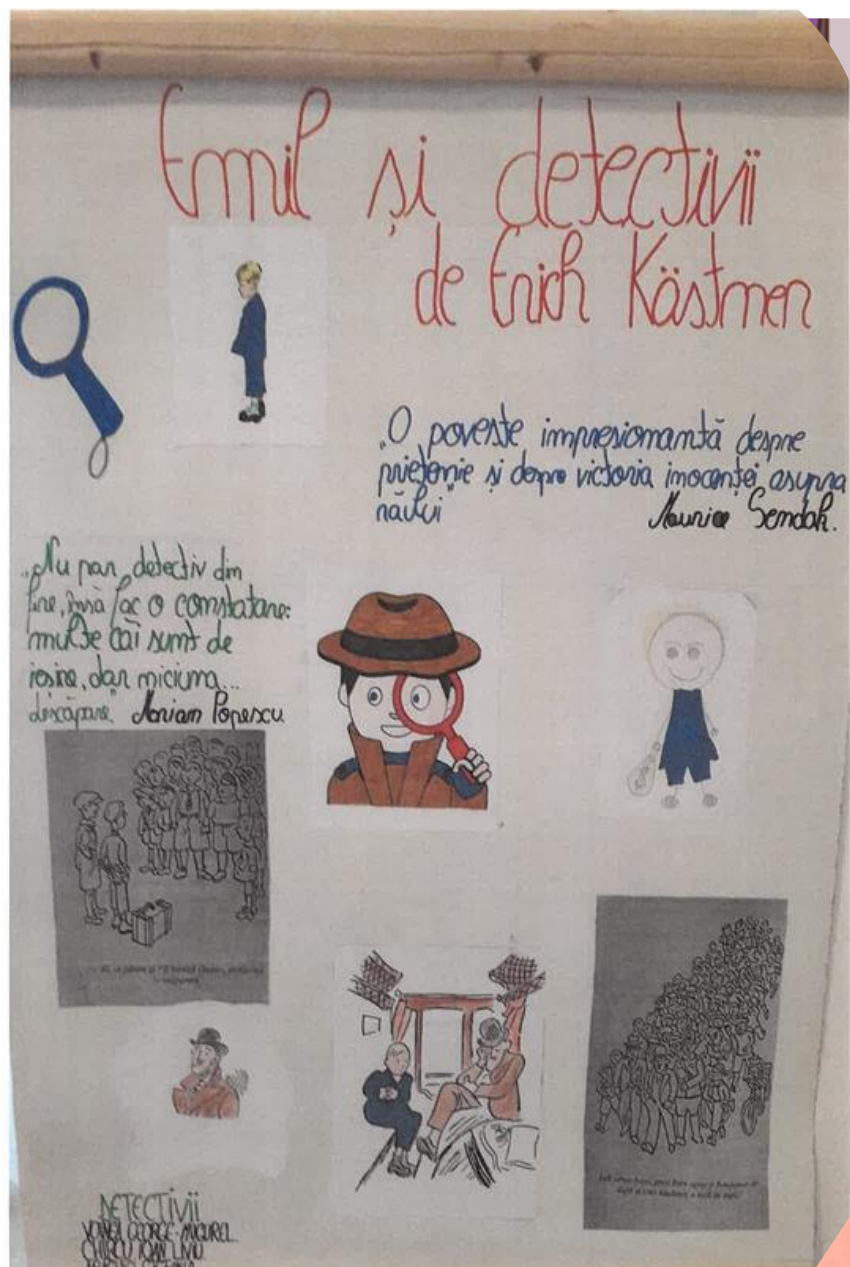 Emil și detectivii
de Erich Kästner
„O poveste impresionantă despre
prietenie și despre victoria inocenței asupra
răului"
Maurice Sendak.
„Nu par detectiv din
fire, însă fac o constatare:
multe căi sunt de
ieșire, dar niciuna...
descăpare" Marian Popescu
DETECTIVII
VOINEA GEORGE-MUGUREL
CHIRCU IOAN LIVIU